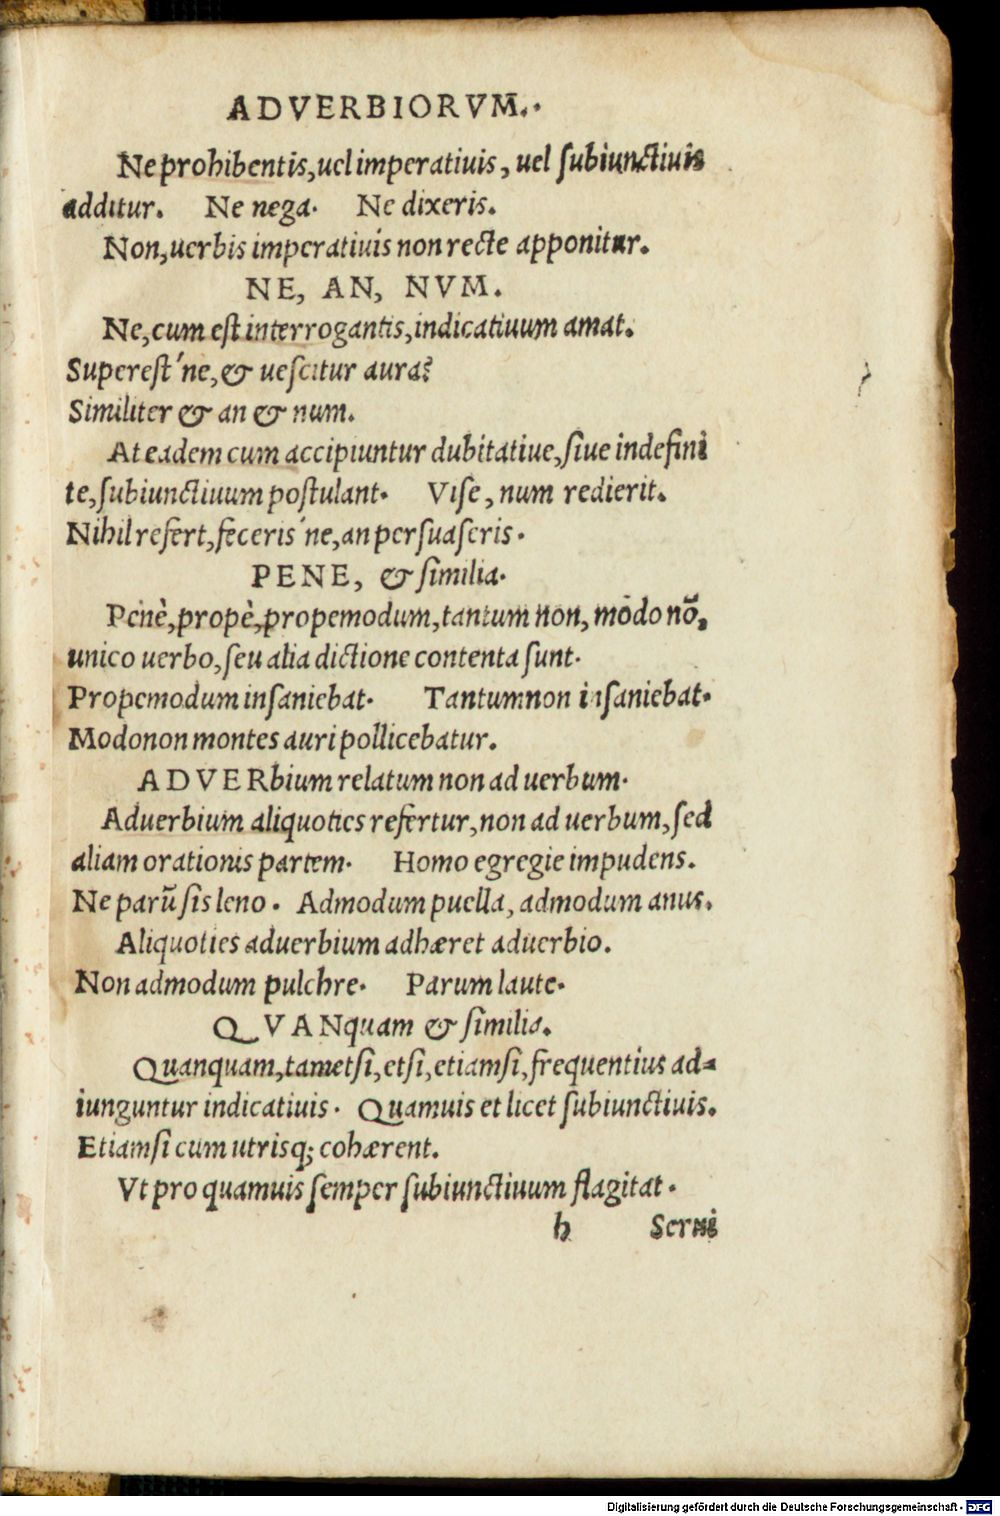 ADVERBIORVM.
Ne prohibentis, uel imperatiuis, uel subiunctiuis
additur. Ne nega. Ne dixeris.
Non, uerbis imperatiuis non recte apponitur.
NE, AN, NVM.
Ne, cum est interrogantis, indicatiuum amat.
Superest'ne, & uescitur aura?
Similiter & an & num.
At eadem cum accipiuntur dubitatiue, siue indefini
te, subiunctiuum postulant. Vise, num redierit.
Nihil refert, feceris'ne, an persuaseris.
PENE, & similia.
Penè, propè, propemodum, tantum non, modo nō,
unico uerbo, seu alia dictione contenta sunt.
Propemodum insaniebat. Tantumnon insaniebat.
Modonon montes auri pollicebatur.
ADVERbium relatum non ad uerbum.
Aduerbium aliquoties refertur, non ad uerbum, sed
aliam orationis partem. Homo egregie impudens.
Ne parū sis leno. Admodum puella, admodum anus.
Aliquoties aduerbium adhæret aduerbio.
Non admodum pulchre. Parum laute.
QVANquam & similia.
Quanquam, tametsi, etsi, etiamsi, frequentius ad-
iunguntur indicatiuis. Quamuis et licet subiunctiuis.
Etiamsi cum utrisq; cohærent.
Vt pro quamuis semper subiunctiuum flagitat.
h Serui
Digitalisierung gefördert durch die Deutsche Forschungsgemeinschaft - DFG